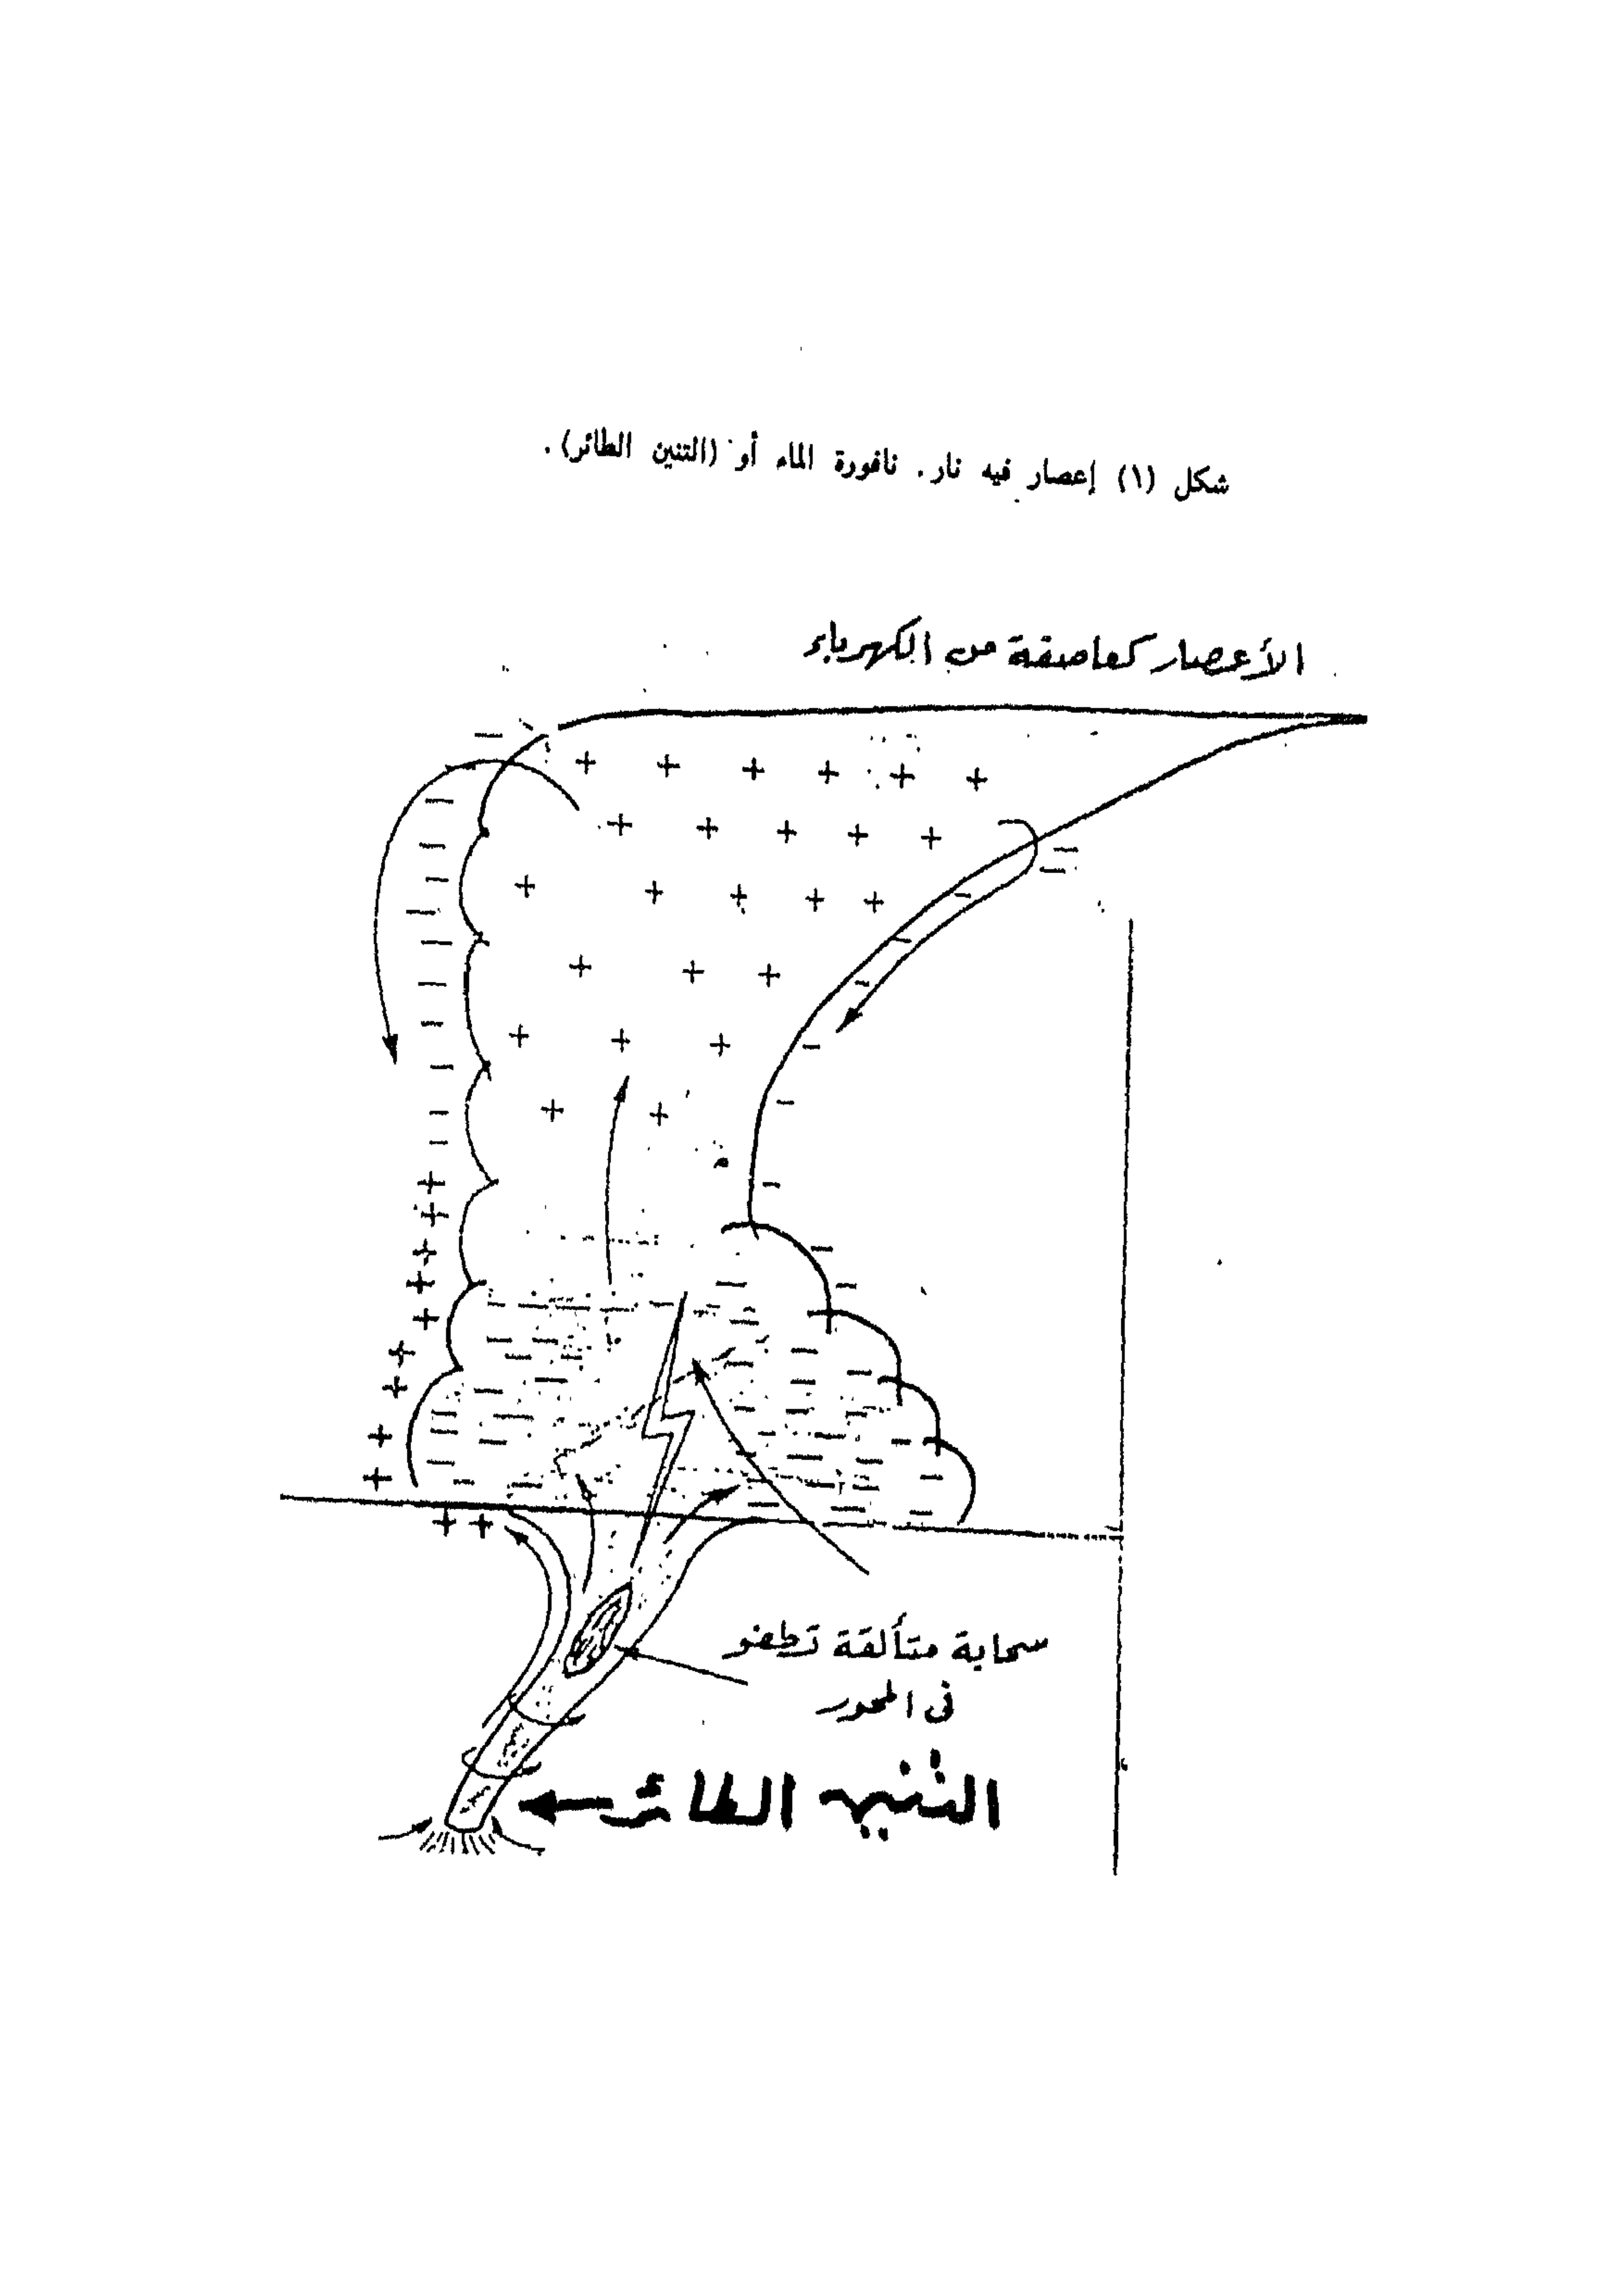 شكل (١) إعصار فيه نار. نافورة الماء أو (التنين الطائر).
الأعصار كعاصفة من الكهرباء
سحابة متألقة تطفو
فى المحور
التنين الطائر